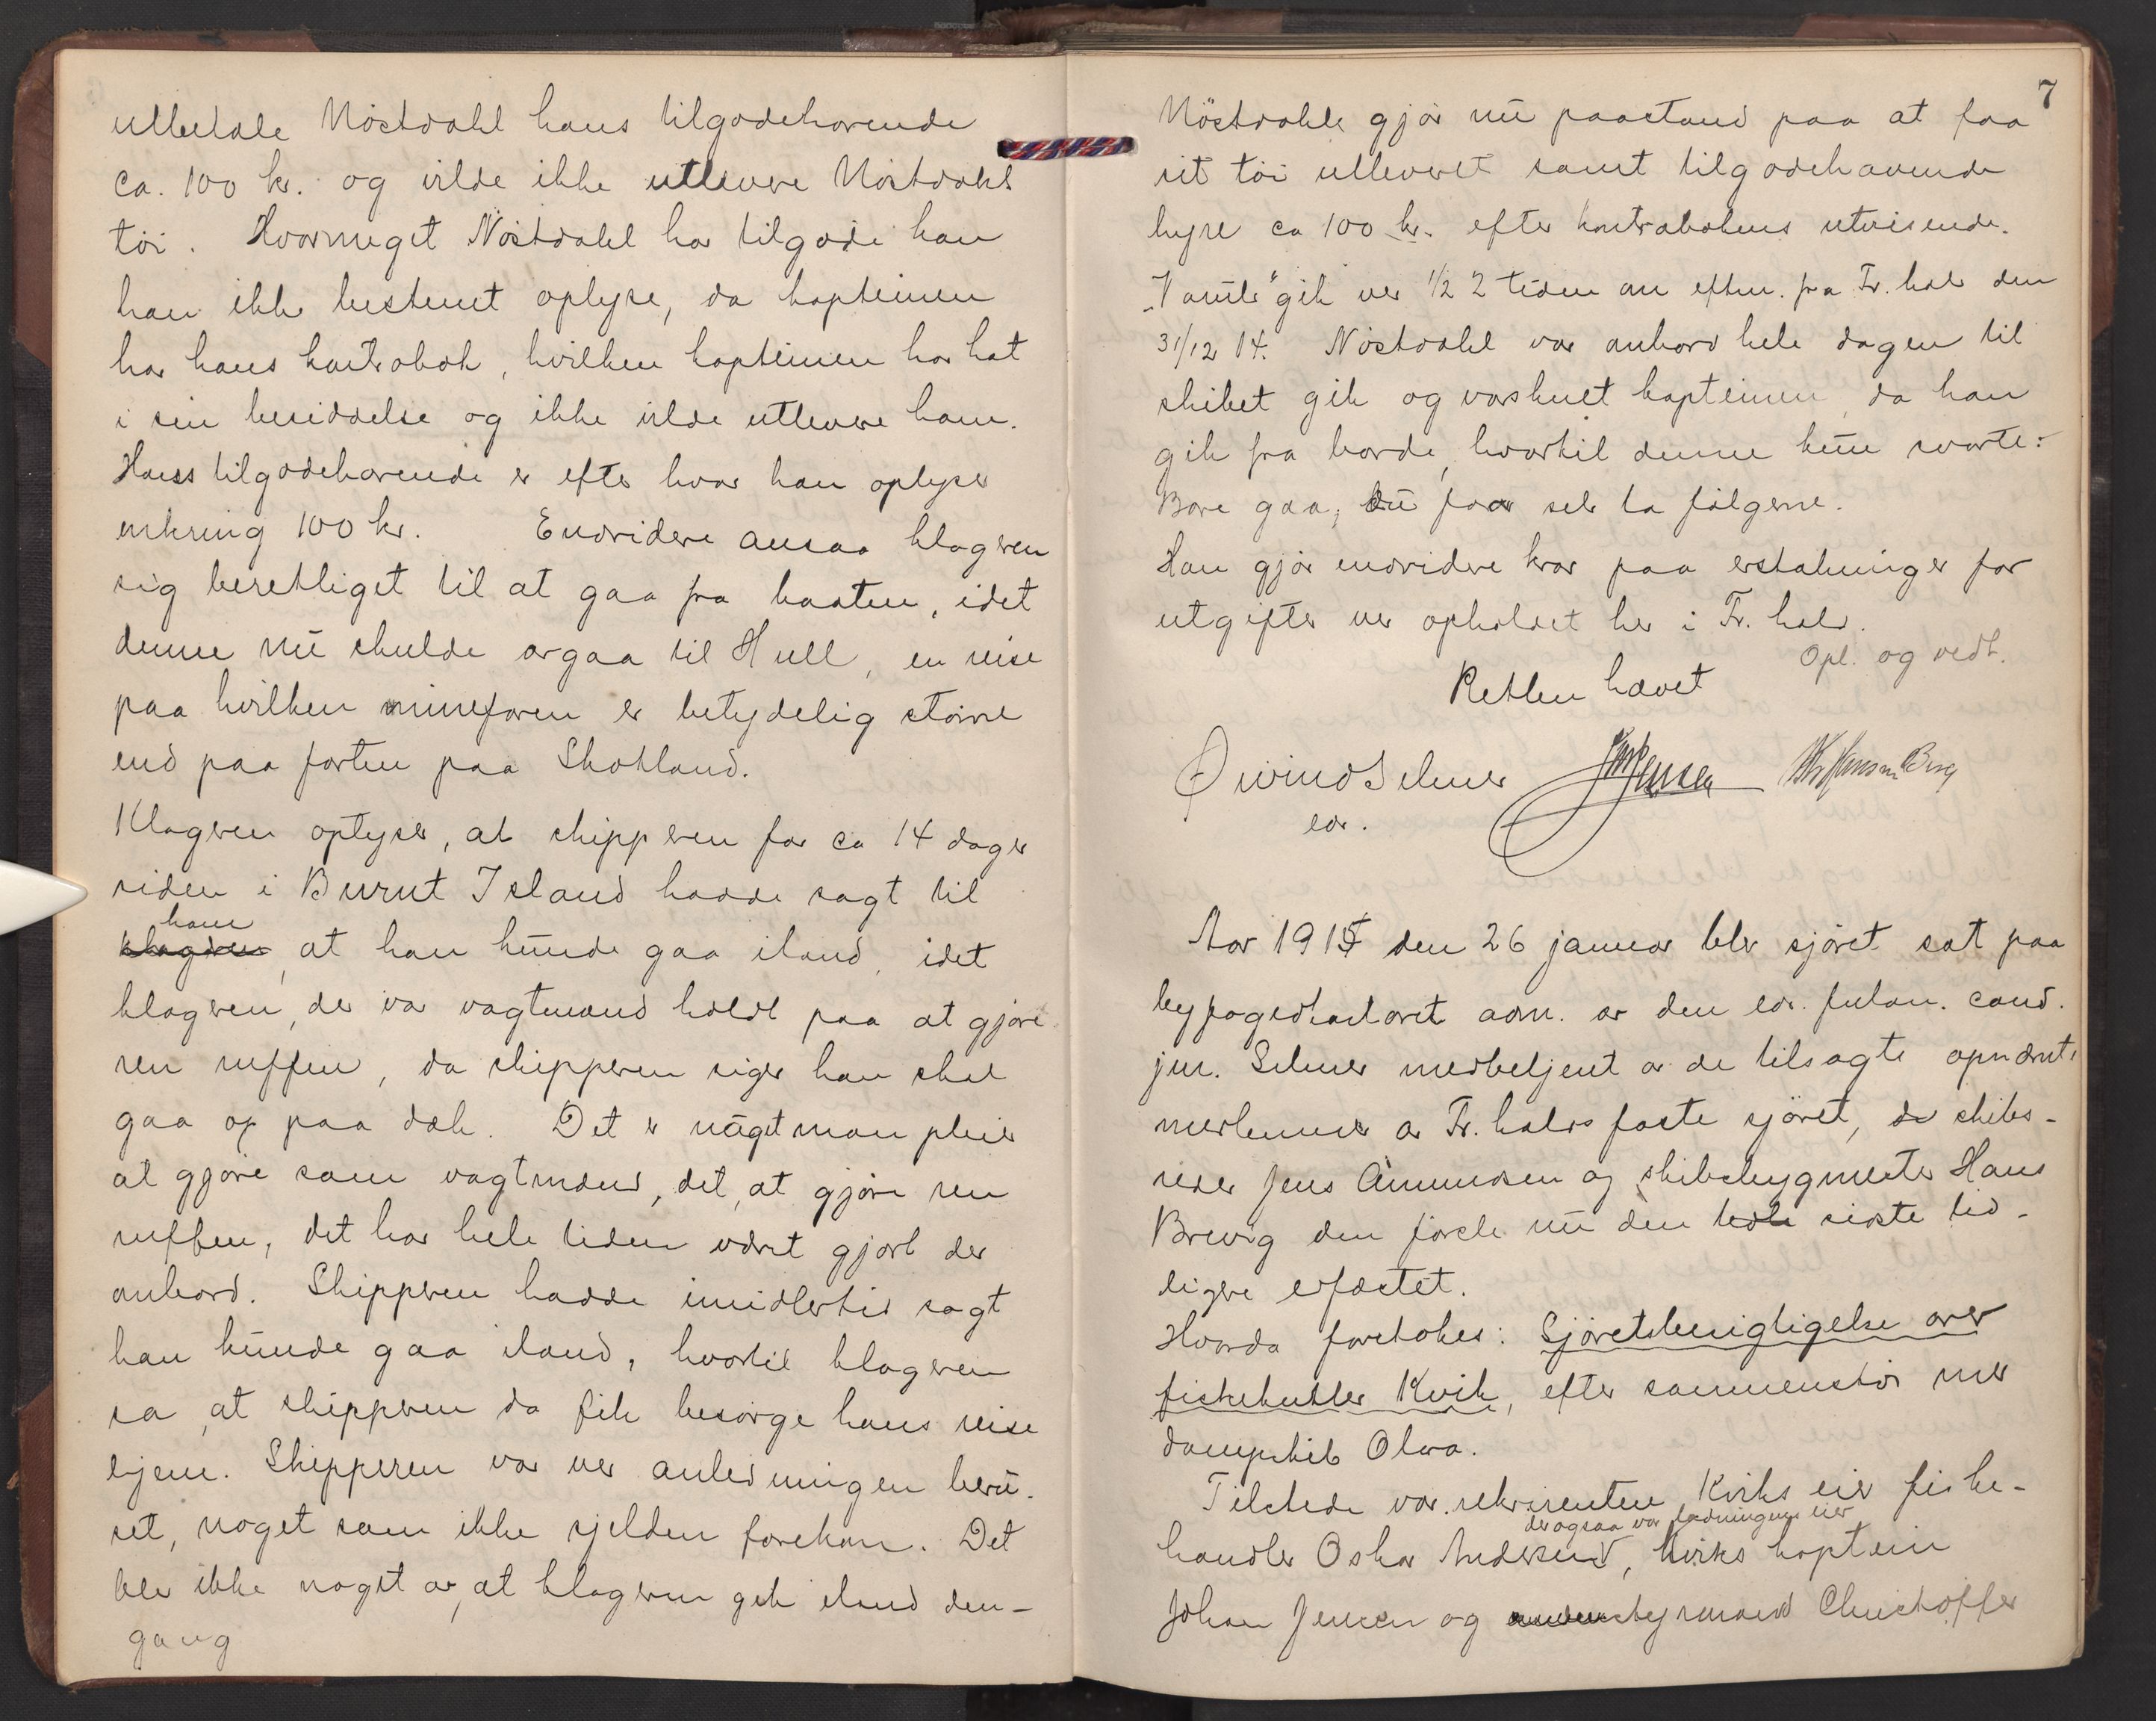 utbetale Nöstdahl hans tilgodehavende
ca. 100 kr. og vilde ikke utlevere Nöstdahl
töi. Hvormeget Nöstdahl har tilgode kan
han ikke bestemt oplyse, da kapteinen
har hans kontrabok, hvilken kapteinen har hat
i sin besiddelse og ikke vilde utlevere ham.
Hans tilgodehavende er efter hvad han oplyser
omkring 100 kr. Endvidere ansaa klageren
sig berettiget til at gaa fra baaten, idet
denne nu skulde avgaa til Hull, en reise
paa hvilken minefaren er betydelig större
end paa farten paa Skotland.
Klageren oplyser, at skipperen for ca 14 dager
siden i Burnt Island hadde sagt til
ham
klageren, at han kunde gaa iland, idet
klageren, der var vagtmand holdt paa at gjöre
ren ruffen, da skipperen siger han skal
gaa op paa dæk. Det er noget man pleier
at gjöre som vagtmand, det, at gjöre ren
ruffen, det har hele tiden været gjort der
ombord. Skipperen hadde imidlertid sagt
han kunde gaa iland, hvortil klageren
sa, at skipperen da fik besörge hans reise
hjem. Skipperen var ved anledningen beru-
set, noget som ikke sjelden forekom. Det
blev ikke noget av, at klageren gik iland den-
gang
7
Nöstdahl gjör nu paastand paa at faa
sit töi utleveret samt tilgodehavende
hyre ca 100 kr. efter kontrabokens utvisende.
gik ved 1/2 2 tiden om efterm. fra Fr.hald den
31/12 14. Nöstdahl var ombord hele dagen til
skibet gik og varskuet kapteinen, da han
gik fra borde, hvortil denne kun svarte:
Bare gaa, du faar selv ta fölgerne.
Han gjör endvidere krav paa erstatninger for
utgifter ved opholdet her i Fr.hald.
Opl. og vedt.
Retten hævet
Øivind Selmer
edv.
Aar 1915 den 26 januar blev sjöret sat paa
byfogedkontoret adm. av den edv. fuldm. cand.
jur. Selmer medbetjent av de tilsagte opnævnte
medlemmer av Fr.halds faste sjöret, d'hr skibs-
reder Jens Amundsen og skibsbygmester Hans
Brevig den förste nu den sidste tid-
ligere edfæstet.
Hvorda foretokes: Sjöretsbesigtigelse over
fiskekutter Kvik, efter sammenstöt med
dampskib Olava.
Tilstede var rekvirenten, Kviks eier fiske-
der ogsaa var ladningens eier
handler Oskar Andersen, Kviks kaptein
Johan Jensen og styrmand Christoffer